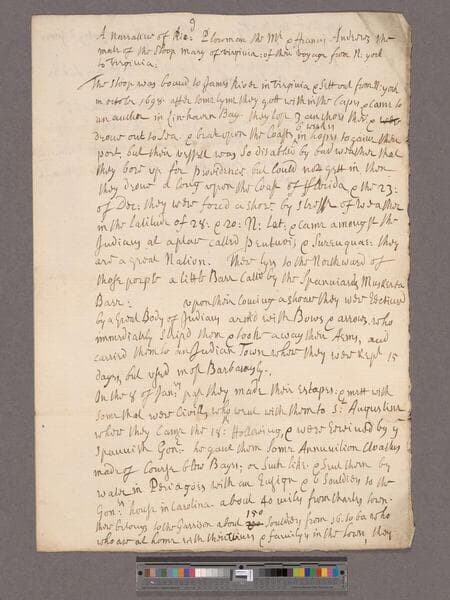 A Narrative of Ric^d Plowman the M^r & francis Andrews the
mate of the Sloop Mary of Virginia: of their voyage from N: york
to Virginia:
The Sloop was bound to James River in Virginia & Sett out from N: york
in october 1698 after some tyme they gott within the Capes, & came to
an anchor in Linhaven Bay: they lost 3 anchors there, &
drove out to Sea & beat upon the Coasts 6 weekes in hopes to gaine their
port, but their vessel was so disabled by bad weather that
they bore up for providence but could not gett in, then
they drove a long upon the Coast of Florida & the 23:
of Dec: they were forced a shore, by stresse of weather
in the latitude of 28: & 20: N: Lat: & came amongst the
Indians at a place called & they
are a great Nation. there lyes to the Northward of
those people a little Barr Called by the Spaniards Musketa
Barr: upon their Coming a shoar they were
by a great Body of Indians armed with Bows & arrows, who
immediately stript them & took away their Arms, and
carried them to an Indian Town where they were kept 15
days, but used most Barbarously.
In the 8 of Jan^ry past they made their Escapes: & mett with
some that were Civil, who went with them to S^t Augusteen
where they Came the 18: following, & were Received by y^e
Spannish Gon^r: he gave them some Ammunition Cloathes
made of Course blew Bays, or Such like: & Sent them by
water in Periagoes with an Ensign & 6 Souldiers to the
Gon^rs house in Carolina about 40 miles from Charles town:
there belongs to the Garrison about 150 Souldiers from 16: to 60 who
who are at home with their wives & familys in the town, they